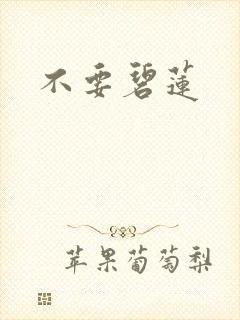 不要碧莲
苹果葡萄梨